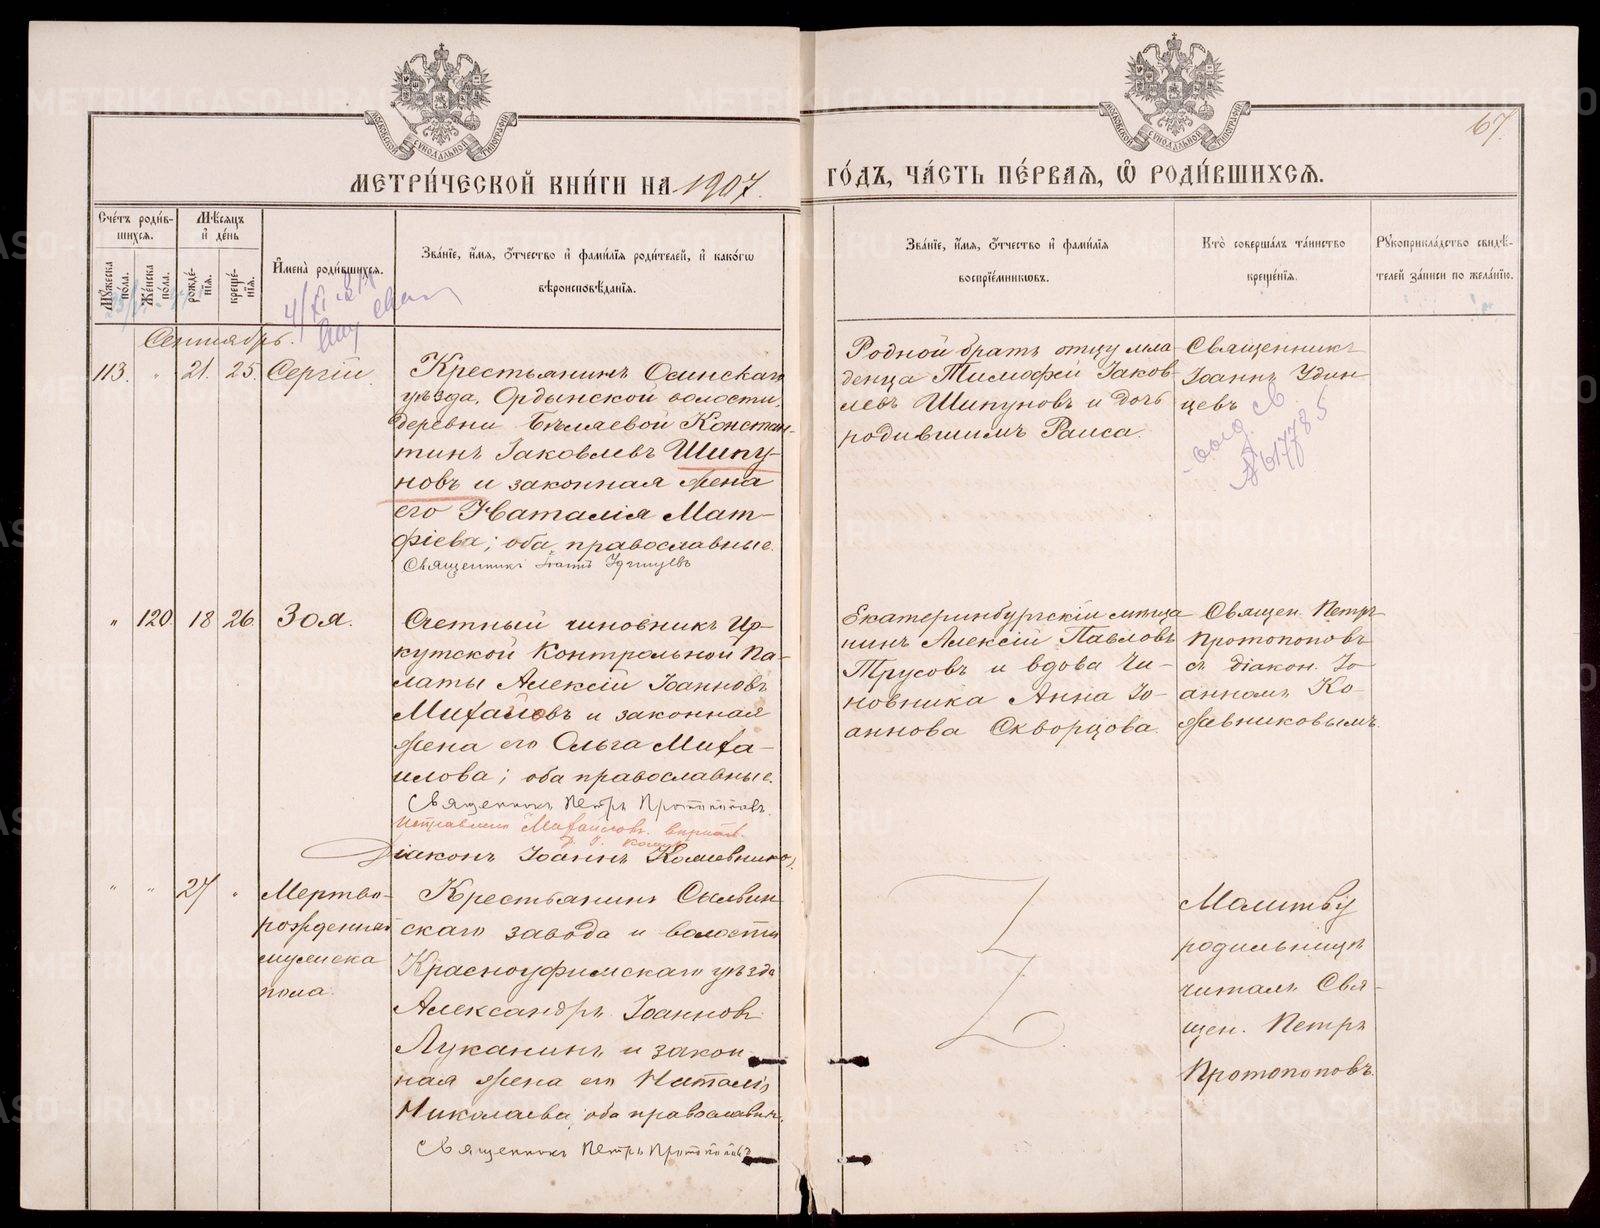 МЕТРИ́ЧЕСКОЙ КНИ́ГИ НА 1907.
ГО́ДЪ, ЧА́СТЬ ПЕ́РВАЯ, Ѽ РОДИ́ВШИХСЯ.
67.
Сче́тъ роди́в-
шихся.
Му́жеска по́ла.
Же́нска по́ла.
Мѣ́сяцъ
и де́нь
рожде́-
нїя.
креще́-
нїя.
Имена̀ роди́вшихся.
Зва́нїе, и́мя, ѻ́тчество и фами́лїя роди́телей, и како́гѡ
вѣроисповѣ́данїя.
Зва́нїе, и́мя, ѻ́тчество и фами́лїя
воспрїе́мниковъ.
Кто̀ соверша́лъ та́инство
креще́нїя.
Рꙋкоприкла́дство свидѣ́-
телей за́писи по жела́нїю.
Сентябрь.
113. " 21. 25. Сергій.
Крестьянинъ Осинскаго
уѣзда, Ордынской волости,
деревни Бѣляевой Констан-
тинъ Іаковлевъ Шипу-
новъ и законная жена
его Наталія Мат-
фіева; оба православные.
Родной братъ отцу мла-
денца Тимофей Іаков-
левъ Шипуновъ и дочь
родившимъ Раиса.
Священникъ
Іоаннъ Удин-
цевъ
" 120 18 26 Зоя.
Счетный чиновникъ Ир-
кутской Контрольной Па-
латы Алексій Іоанновъ
Михайловъ и законная
жена его Ольга Миха-
илова; оба православные.
Священникъ Петръ Протопоповъ.
Исправлено "Михайловъ" вѣрить.
Діаконъ Іоаннъ Кожевников
Екатеринбургскій мѣща-
нинъ Алексій Павловъ
Трусовъ и вдова Чи-
новника Анна Іо-
аннова Скворцова.
Священ. Петръ
Протопоповъ
съ діакон. Іо-
анномъ Ко-
жевниковымъ.
" " 27 " Мертво-
рожденный
мужеска
пола.
Крестьянинъ Сылвин-
скаго завода и волости
Красноуфимскаго уѣзда
Александръ Іоанновъ
Луканинъ и закон-
ная жена его Наталія
Николаева, оба православн.
Священникъ Петръ Протопоповъ
Молитву
родильницѣ
читалъ Свя-
щен. Петръ
Протопоповъ.